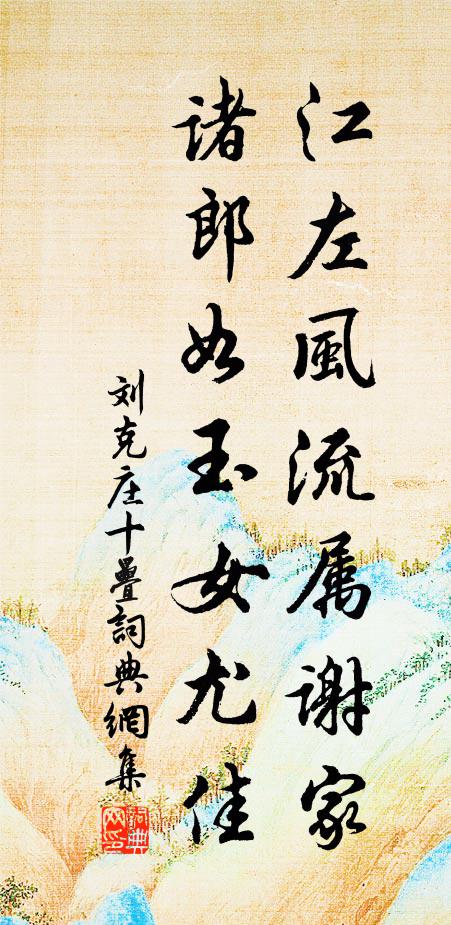 江左風流属谢家
诸郎如玉女尤佳
刘克庄十疊詞典網集
詞典网印